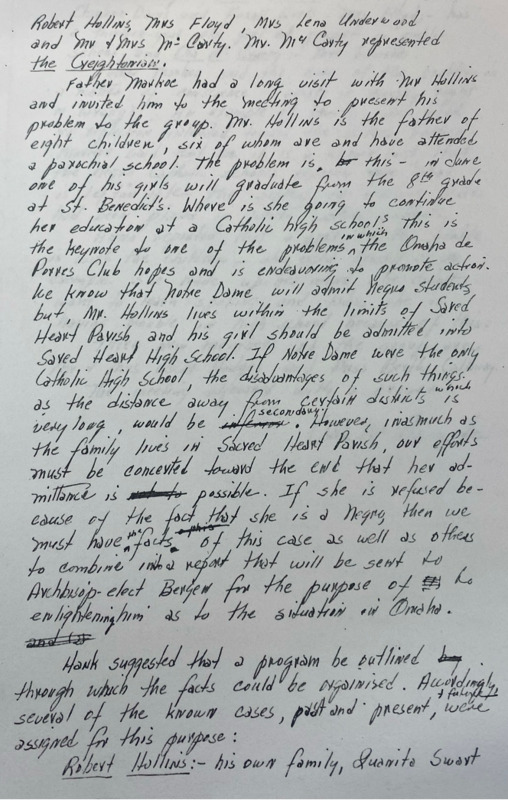 Robert Hollins, Mrs Floyd, Mrs Lena Underwood
and Mr & Mrs McCarty. Mr. McCarty represented
the Creightonian.
Father Markoe had a long visit with Mr Hollins
and invited him to the meeting to present his
problem to the group. Mr. Hollins is the father of
eight children, six of whom are and have attended
a parochial school. The problem is this - in June
one of his girls will graduate from the 8th grade
at St. Benedict's. Where is she going to continue
her education at a Catholic high school? This is
the keynote to one of the problems in which the Omaha de
Porres Club hopes and is endeavoring to promote action.
We know that Notre Dame will admit Negro students,
but, Mr. Hollins lives within the limits of Sacred
Heart Parish and his girl should be admitted into
Sacred Heart High School. If Notre Dame were the only
Catholic High School the disadvantages of such things
as the distance away from certain districts which is
very long, would be secondary. However, inasmuch as
the family lives in Sacred Heart Parish, our efforts
must be concerted toward the end that her ad-
mittance is possible. If she is refused be-
cause of the fact that she is a Negro, then we
must have the facts of this case as well as others
to combine into a report that will be sent to
Archbisop-elect Bergen for the purpose of
enlightening him as to the situation in Omaha.
Hank suggested that a program be outlined
through which the facts could be organised. Accordingly,
several of the known cases, past and present, were
assigned for this purpose:
Robert Hollins:- his own family, Quanita Swart